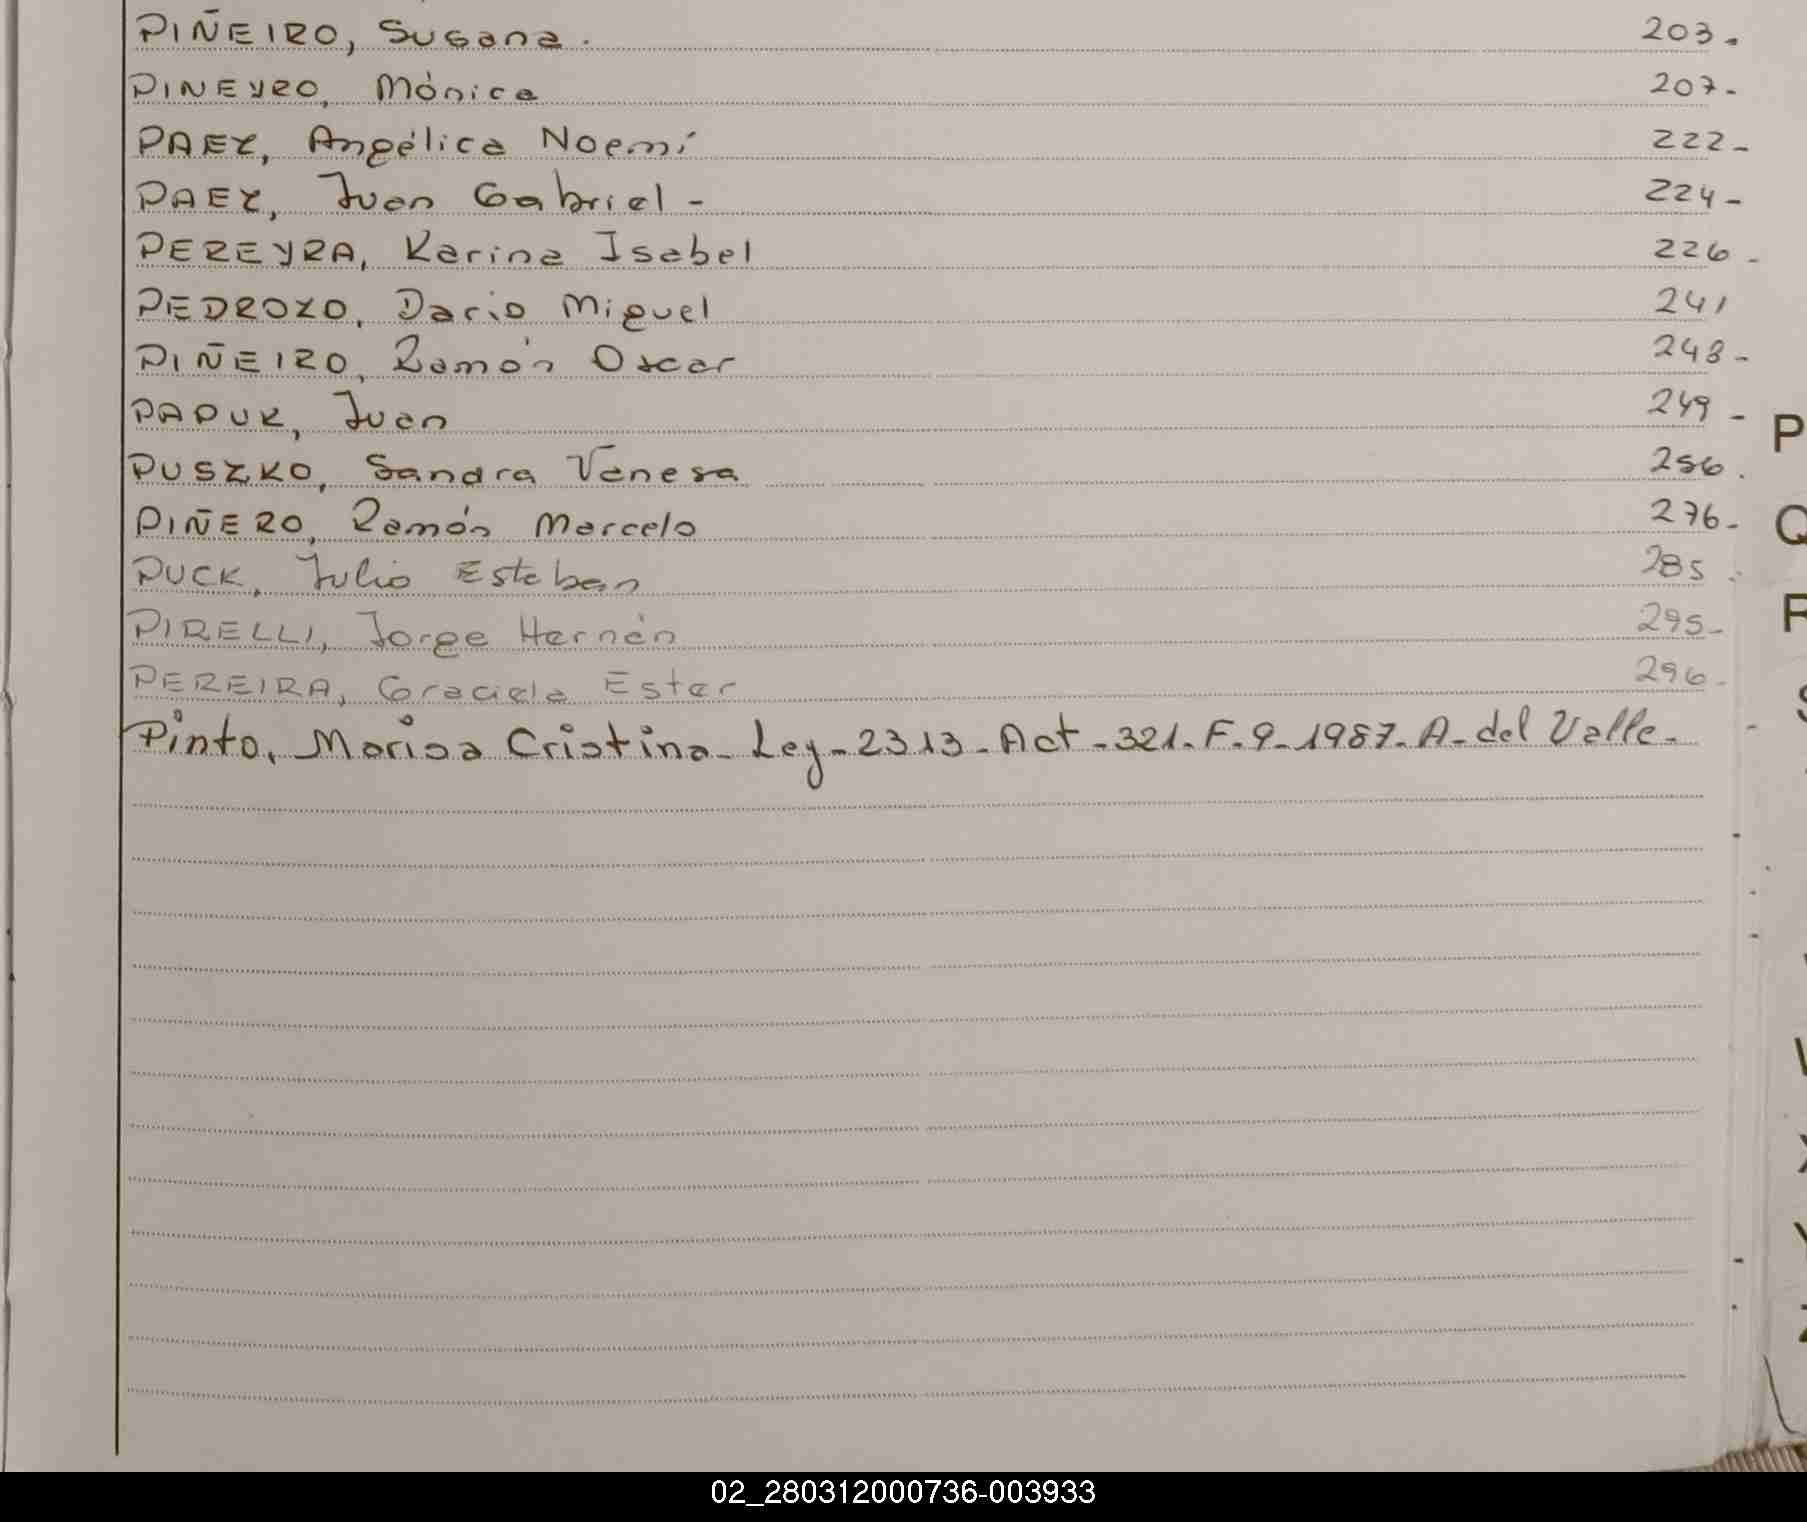 PIÑEIRO, Susana. 203.
PINEYRO, Mónica 207-
PAEZ, Angélica Noemí 222-
PAEZ, Juan Gabriel - 224-
PEREYRA, Karina Isabel 226-
PEDROZO, Dario Miguel 241
PIÑEIRO, Ramón Oscar 248-
PAPUK, Juan 249-
PUSZKO, Sandra Vanesa 256.
PIÑERO, Ramón Marcelo 276-
PUCK, Julio Esteban 285.
PIRELLI, Jorge Hernán 295-
PEREIRA, Graciela Ester 296-
Pinto, Marisa Cristina- Ley-2313-Act-321.F.9-1987-A-del Valle-
P
Q
R
S
V
X
Y
Z
02_280312000736-003933